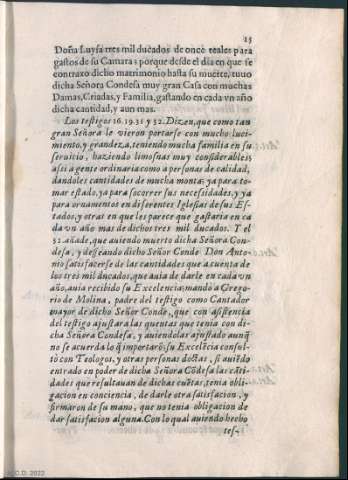 25
Doña Luysa tres mil ducados de once reales para
gastos de su Camara: porque desde el dia en que se
contraxo dicho matrimonio hasta su muerte, tuuo
dicha Señora Condesa muy gran Casa con muchas
Damas, Criadas, y Familia, gastando en cada vn año
dicha cantidad, y aun mas.
Los testigos 16. 19. 31 y 32. Dizen, que como tan
gran Señora le vieron portarse con mucho luci-
miento, y grandeza, teniendo mucha familia en su
seruicio, haziendo limosnas muy considerables
assi a gente ordinaria como a personas de calidad,
dandoles cantidades de mucha monta: ya para to-
mar estado, ya para socorrer sus necesidades, y ya
para ornamentos en diferentes Iglesias de sus Es-
tados, y otras en que les parece que gastaria en ca
da vn año mas de dichos tres mil ducados. Y el
32. añade, que auiendo muerto dicha Señora Con-
desa, y desseando dicho Señor Conde Don Anto-
nio satisfacerse de las cantidades que a cuenta de
los tres mil ducados, que auia de darle en cada vn
año, auia recibido su Excelencia; mandò a Grego-
rio de Molina, padre del testigo como Cantador
mayor de dicho Señor Conde, que con asistencia
del testigo ajustara las quentas que tenia con di-
cha Señora Condesa, y auiendolas ajustado aunq̃
no se acuerda lo q̃ importarõ: su Excelẽcia consul-
tò con Teologos, y otras personas doctas, si auiẽdo
entrado en poder de dicha Señora Cõdesa las cãti-
dades que resultauan de dichas cuẽtas, tenia obli-
gacion en conciencia, de darle otra satisfacion, y
firmaron de su mano, que no tenia obligacion de
dar satisfacion alguna. Con lo qual auiendo hecho
tes-
A.C.D. 2022